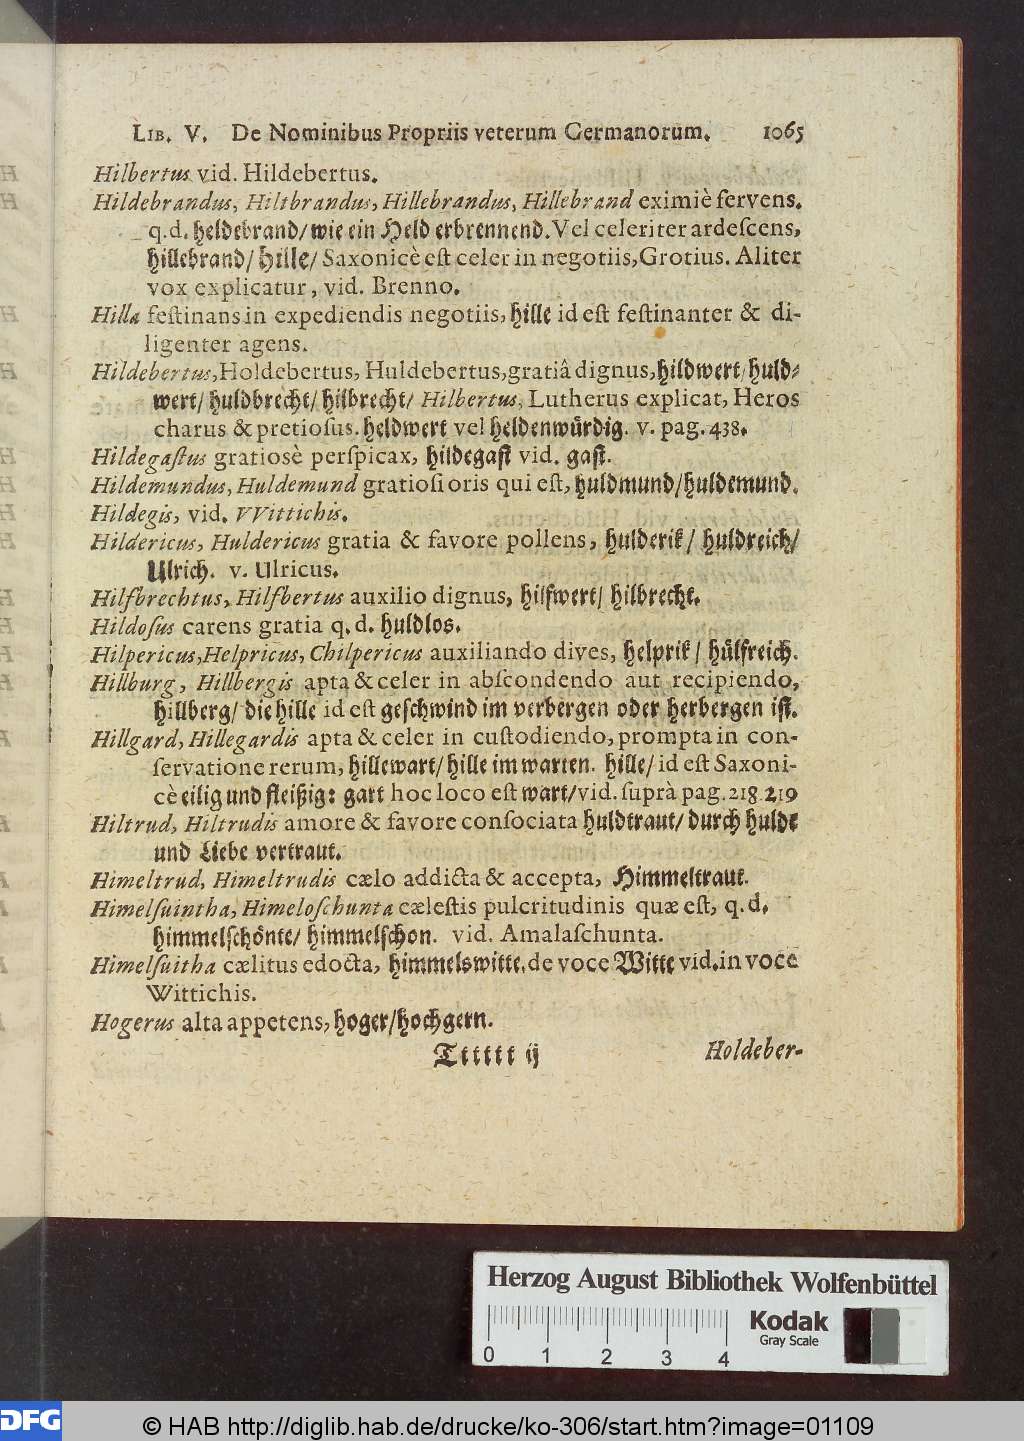 LIB. V. De Nominibus Propriis veterum Germanorum. 1065
Hilbertus vid. Hildebertus.
Hildebrandus, Hiltbrandus, Hillebrandus, Hillebrand eximiè fervens.
q.d. heldebrand/ wie ein Held erbrennend. Vel celeriter ardeſcens,
hillebrand/ Hille/ Saxonicè eſt celer in negotiis, Grotius. Aliter
vox explicatur, vid. Brenno.
Hilla feſtinans in expediendis negotiis, hille id eſt feſtinanter & di-
ligenter agens.
Hildebertus, Holdebertus, Huldebertus, gratiâ dignus, hildwert/ huld-
wert/ huldbrecht/ hilbrecht/ Hilbertus, Lutherus explicat, Heros
charus & pretioſus. heldwert vel heldenwürdig. v. pag. 438.
Hildegaſtus gratiosè perſpicax, hildegaſt vid. gaſt.
Hildemundus, Huldemund gratioſi oris qui eſt, huldmund/ huldemund.
Hildegis, vid. VVittichis.
Hildericus, Huldericus gratia & favore pollens, hulderik/ huldreich/
Ulrich. v. Ulricus.
Hilfbrechtus, Hilfbertus auxilio dignus, hilfwert/ hilbrecht.
Hildoſus carens gratia q.d. huldlos.
Hilpericus, Helpricus, Chilpericus auxiliando dives, helprik/ hülfreich.
Hillburg, Hillbergis apta & celer in abſcondendo aut recipiendo,
hillberg/ die hille id eſt geſchwind im verbergen oder herbergen iſt.
Hillgard, Hillegardis apta & celer in cuſtodiendo, prompta in con-
ſervatione rerum, hillewart/ hille im warten. hille/ id eſt Saxoni-
cè eilig und fleißig: gart hoc loco eſt wart/ vid. ſuprà pag. 218. 219
Hiltrud, Hiltrudis amore & favore conſociata huldtraut/ durch hulde
und Liebe vertraut.
Himeltrud, Himeltrudis cælo addicta & accepta, Himmeltraut.
Himelſuintha, Himeloſchunta cæleſtis pulcritudinis quæ eſt, q.d.
himmelſchönte/ himmelſchon. vid. Amalaſchunta.
Himelſuitha cælitus edocta, himmelswitte, de voce Witte vid. in voce
Wittichis.
Hogerus alta appetens, hoger/ hochgern.
Tttttt ij Holdeber-
Herzog August Bibliothek Wolfenbüttel
Kodak
Gray Scale
0 1 2 3 4
DFG
© HAB http://diglib.hab.de/drucke/ko-306/start.htm?image=01109